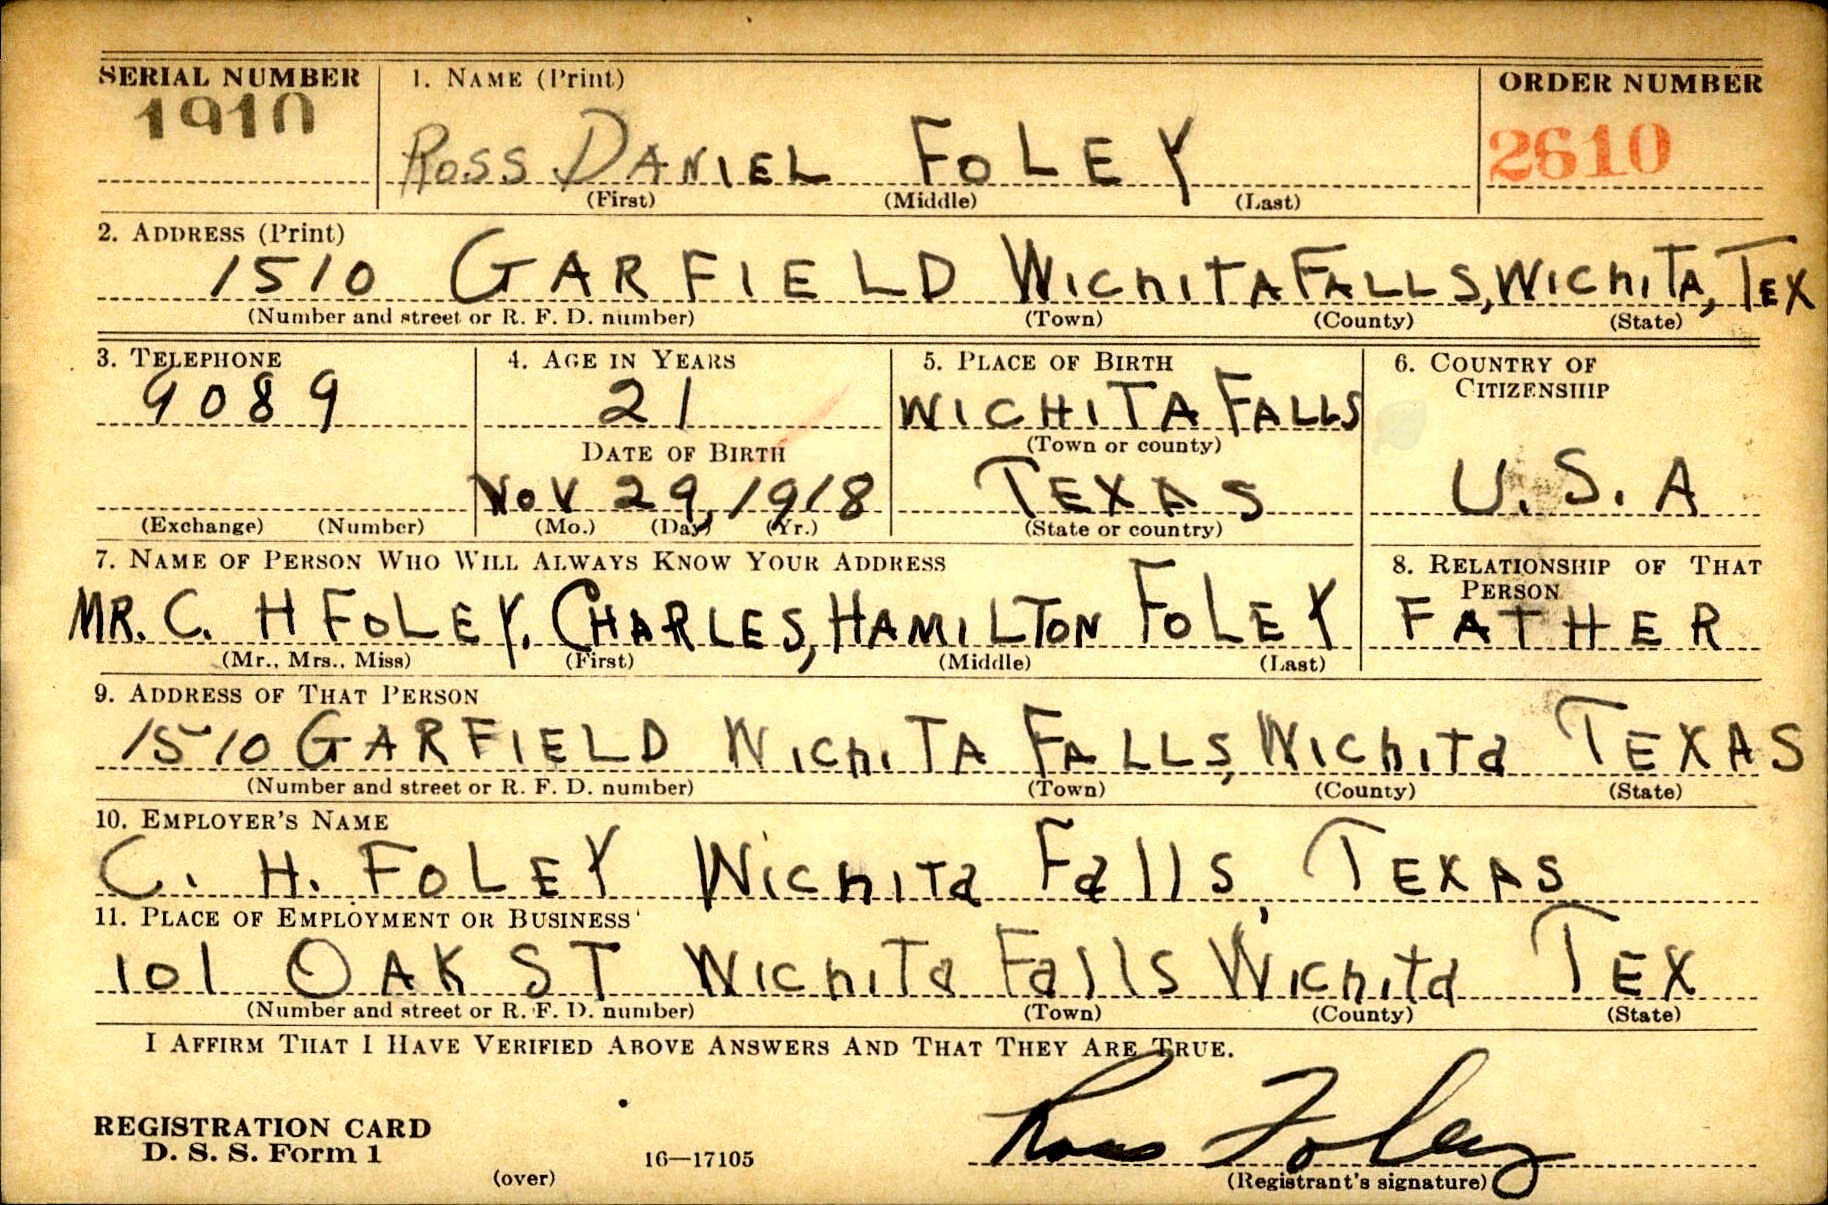 SERIAL NUMBER 1. NAME (Print) ORDER NUMBER
1910 ROSS DANIEL FOLEY 2610
(First) (Middle) (Last)
2. ADDRESS (Print)
1510 GARFIELD WichiTA FALLS, WichiTA, TEX
(Number and street or R. F. D. number) (Town) (County) (State)
3. TELEPHONE 4. AGE IN YEARS 5. PLACE OF BIRTH 6. COUNTRY OF CITIZENSHIP
9089 21 WICHITA FALLS
(Town or county)
DATE OF BIRTH
NOV 29, 1918 TEXAS U.S.A
(Exchange) (Number) (Mo.) (Day) (Yr.) (State or country)
7. NAME OF PERSON WHO WILL ALWAYS KNOW YOUR ADDRESS 8. RELATIONSHIP OF THAT PERSON
MR. C. H FOLEY. CHARLES, HAMILTON FOLEY FATHER
(Mr., Mrs., Miss) (First) (Middle) (Last)
9. ADDRESS OF THAT PERSON
1510 GARFIELD WichiTA FALLS, Wichita TEXAS
(Number and street or R. F. D. number) (Town) (County) (State)
10. EMPLOYER'S NAME
C. H. FOLEY Wichita Falls, TEXAS
11. PLACE OF EMPLOYMENT OR BUSINESS
101 OAK ST Wichita Falls Wichita TEX
(Number and street or R. F. D. number) (Town) (County) (State)
I AFFIRM THAT I HAVE VERIFIED ABOVE ANSWERS AND THAT THEY ARE TRUE.
REGISTRATION CARD
D. S. S. Form 1 16—17105 Ross Foley
(over) (Registrant's signature)